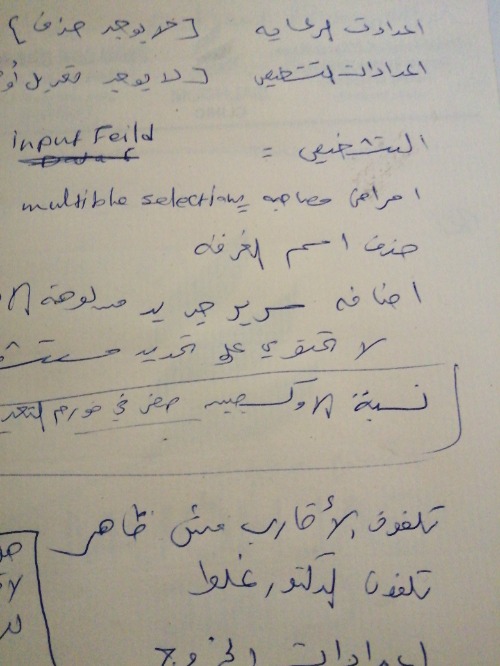 اعدادت الرعايه [ لا يوجد حذف ]
اعدادات التشخيص [ لا يوجد تعديل أو
التشخيص = input Feild
امراض مصاحبه multible selection
حذف اسم الغرفه
اضافه سرير جديد من لوحة الا
لا تحتوي على تحديد مستشف
نسبة الاوكسجين صفر في فورم التعد
تلفون الأقارب مش ظاهر
تلفون الدكتور غلط
اعدادات الخروج